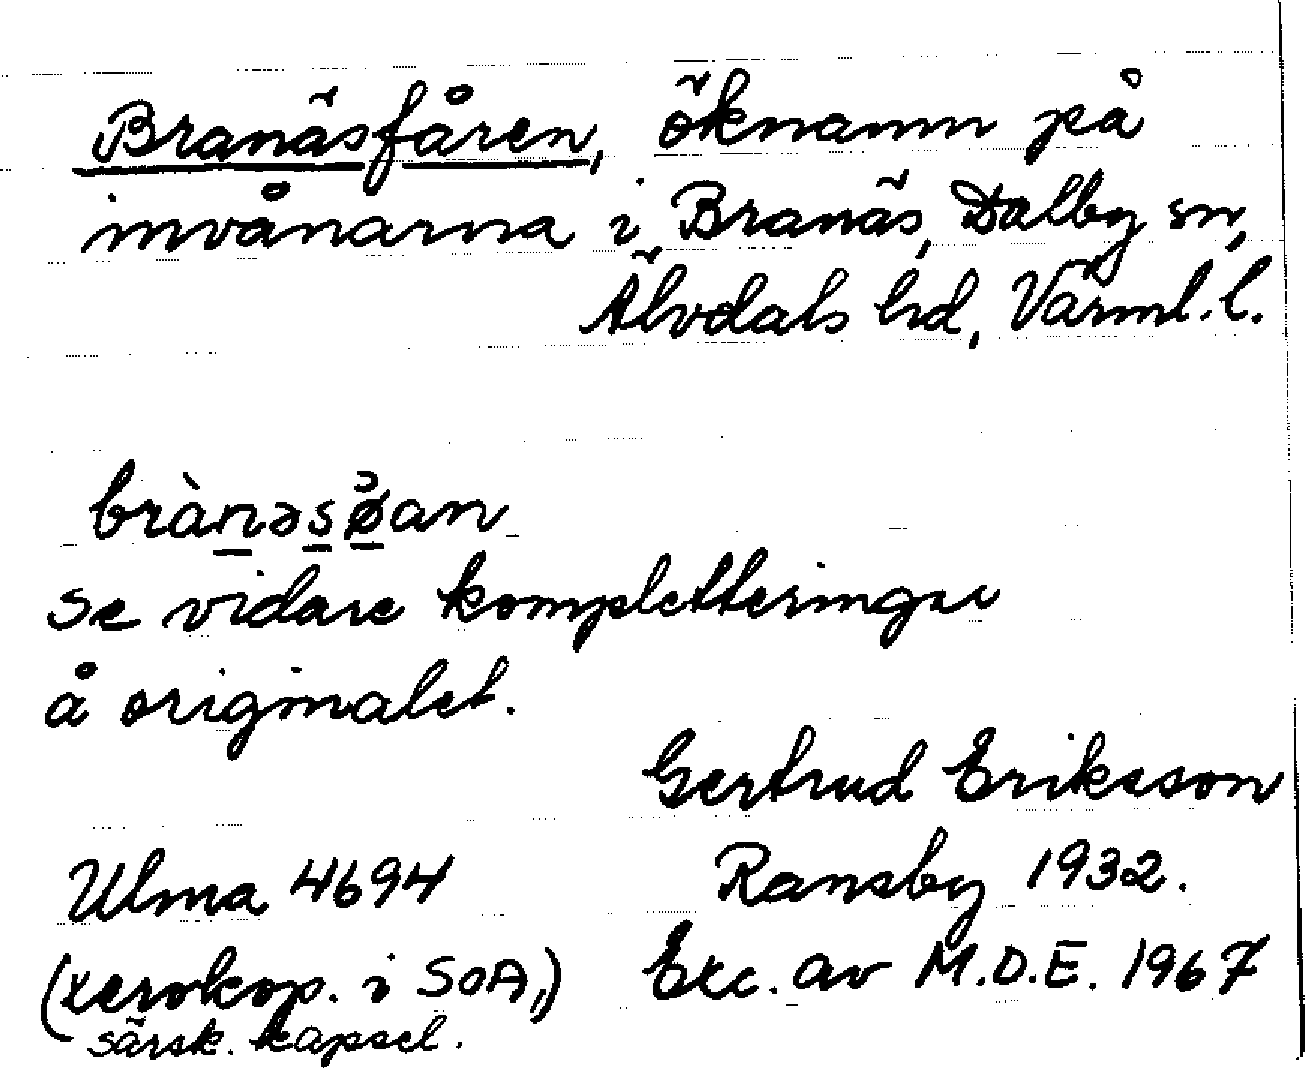 Branäsfåren, öknamn på
invånarna i Branäs, Dalby sn,
Älvdals hd, Värml. l.
se vidare kompletteringar
å originalet.
Gertrud Eriksson
Ulma 4694 Ransby 1932.
(xerokop. i SOA,) Exc. av M.D.E. 1967
särsk. kapsel.